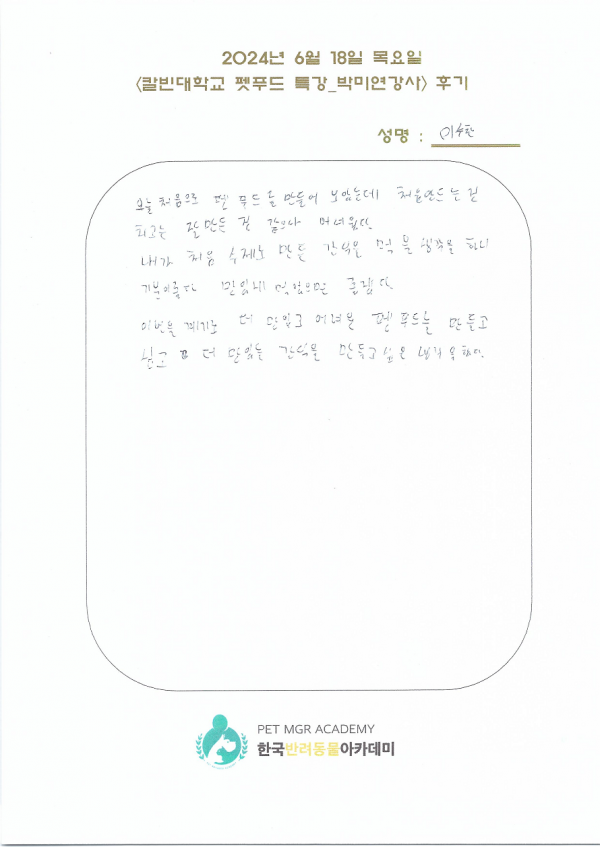 2024년 6월 18일 목요일
<칼빈대학교 펫푸드 특강_박미연강사> 후기
성명 :
오늘 처음으로 펫 푸드를 만들어 보았는데 처음만드는 것
치고는 잘만든 것 같으나 어려웠다.
내가 처음 수제로 만든 간식을 먹을 생각을 하니
기분이좋다 맛있게 먹었으면 좋겠다.
이번을 계기로 더 맛있고 어려운 펫푸드를 만들고
싶고 또 더 맛있는 간식을 만들고 싶은 생각을 했다.
PET MGR ACADEMY
한국반려동물아카데미